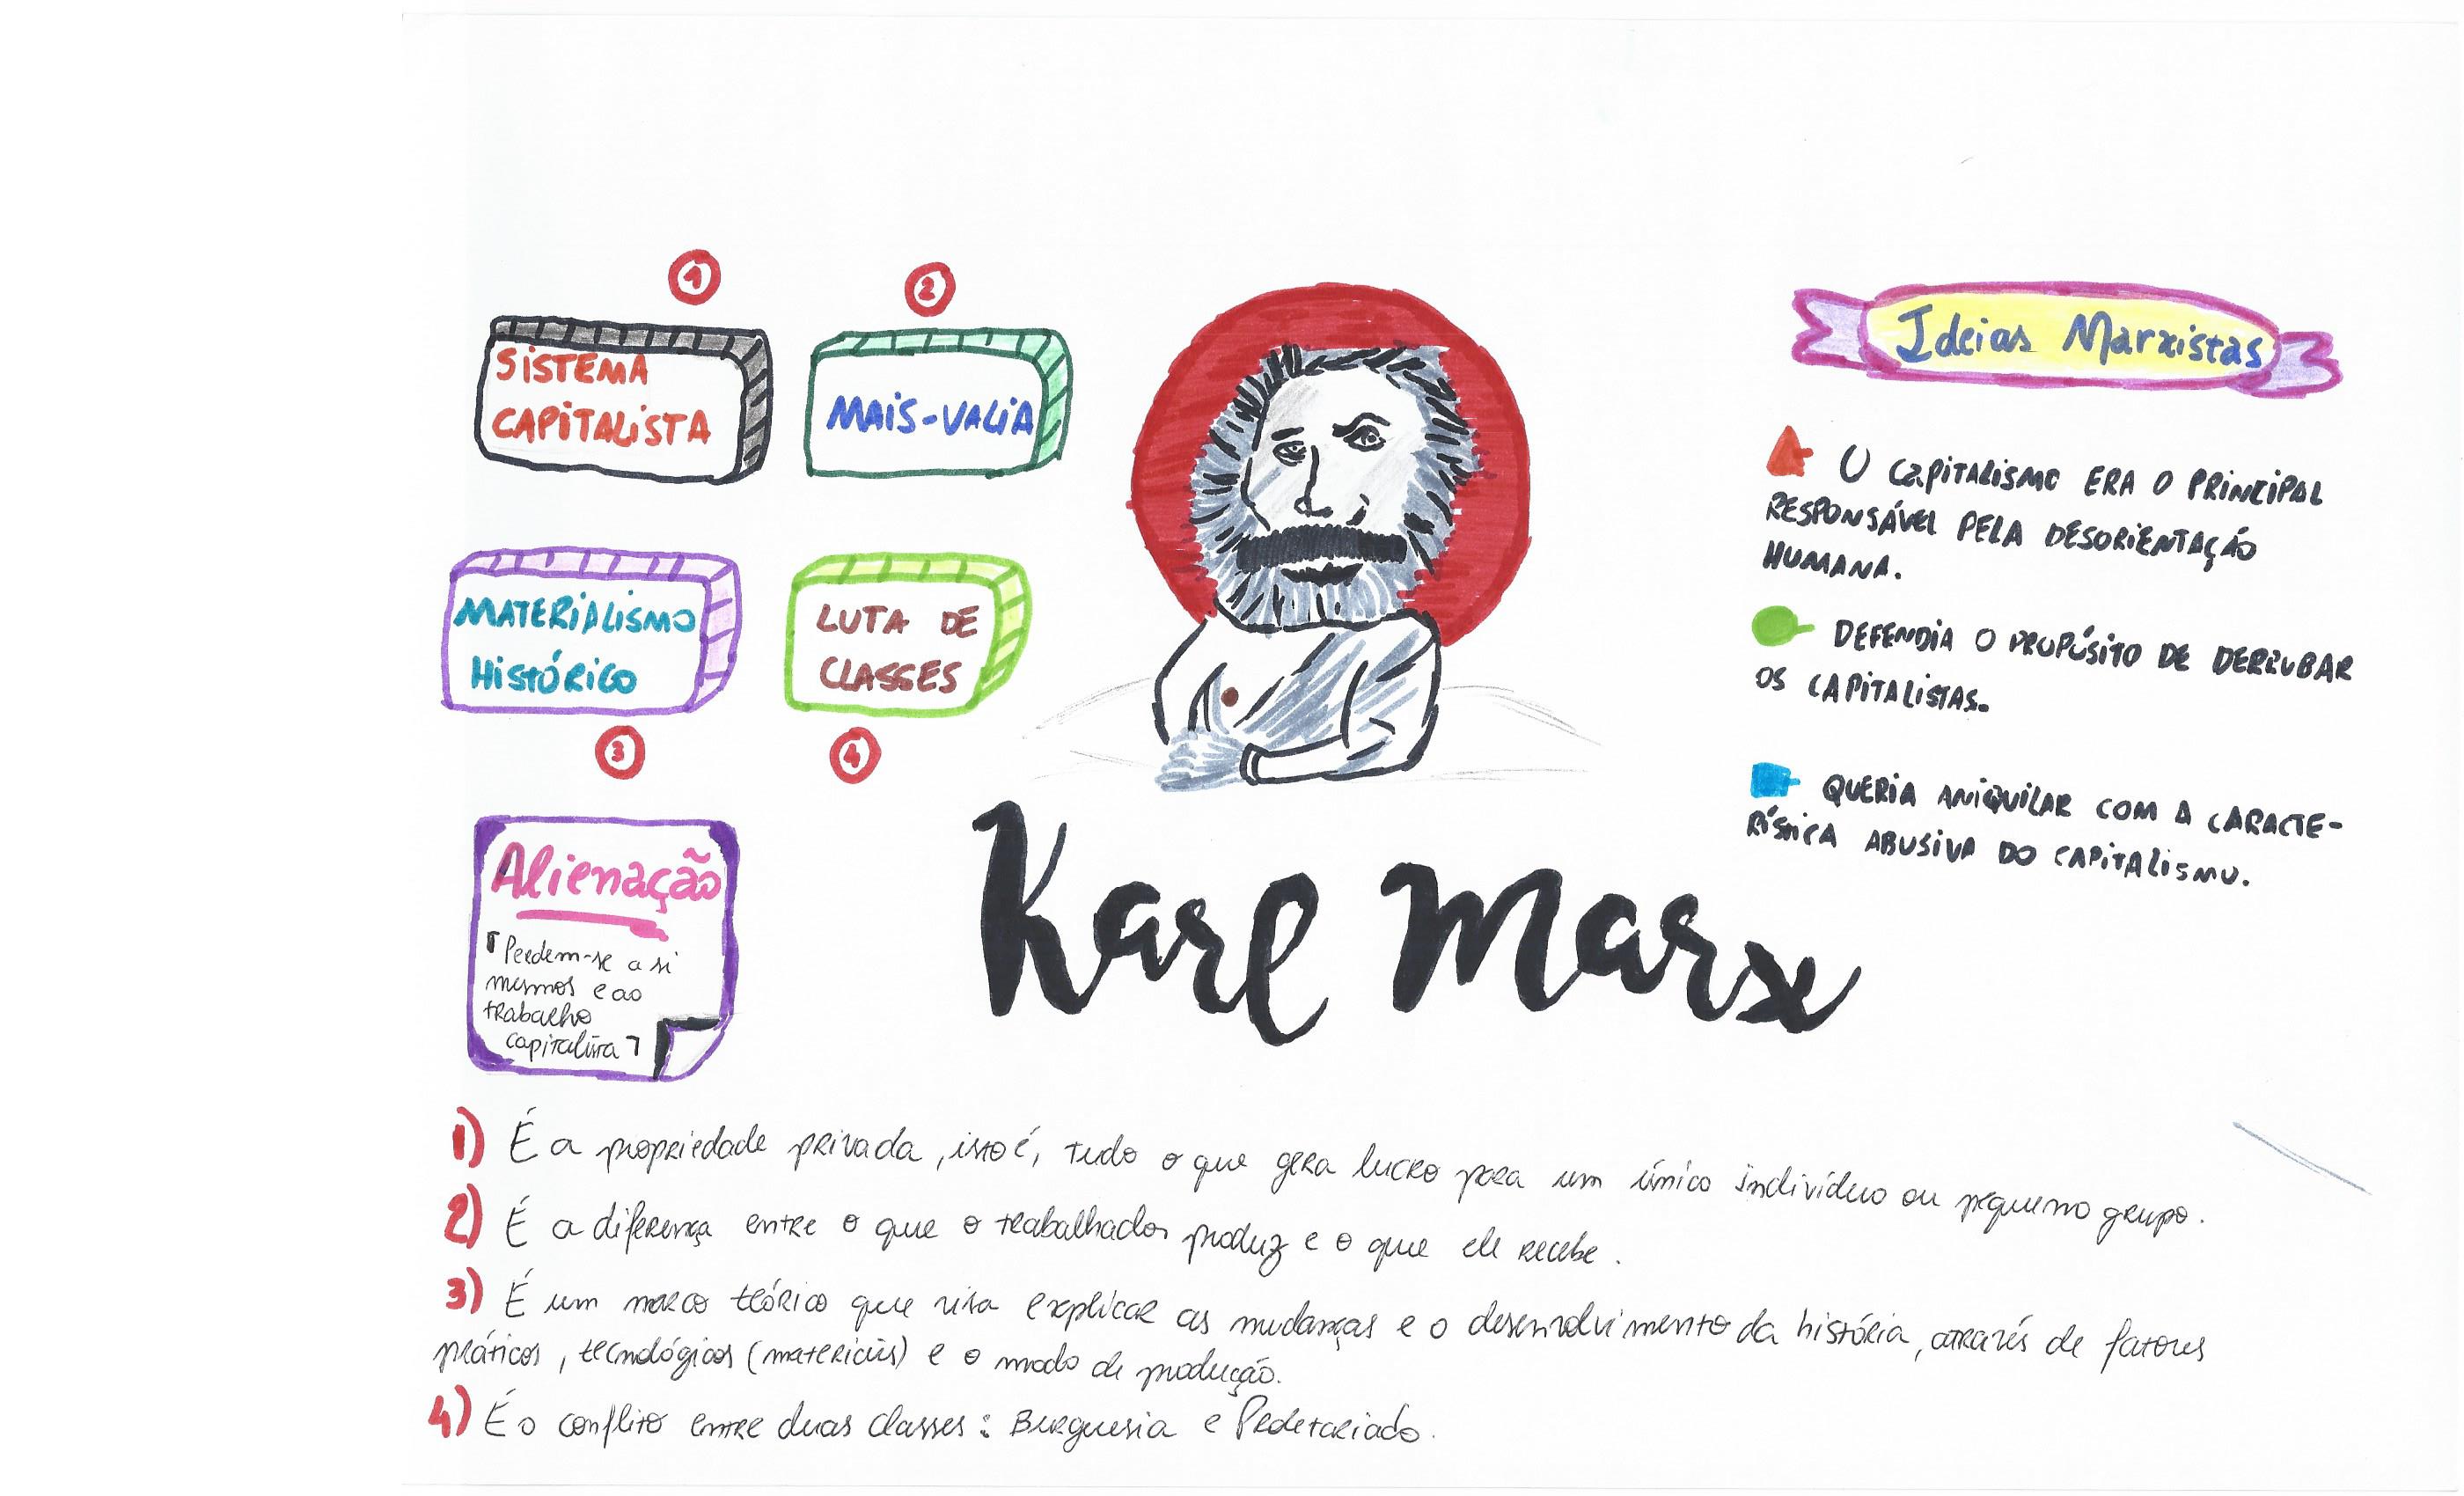 1
SISTEMA
CAPITALISTA
2
MAIS-VALIA
MATERIALISMO
HISTÓRICO
3
LUTA DE
CLASSES
4
Alienação
「Perdem-se a si
mesmos e ao
trabalho
capitalista」
Karl Marx
Ideias Marxistas
O CAPITALISMO ERA O PRINCIPAL
RESPONSÁVEL PELA DESORIENTAÇÃO
HUMANA.
DEFENDIA O PROPÓSITO DE DERRUBAR
OS CAPITALISTAS.
QUERIA ANIQUILAR COM A CARACTE-
RÍSTICA ABUSIVA DO CAPITALISMO.
1) É a propriedade privada, isto é, tudo o que gera lucro para um único indivíduo ou pequeno grupo.
2) É a diferença entre o que o trabalhador produz e o que ele recebe.
3) É um marco teórico que visa explicar as mudanças e o desenvolvimento da história, através de fatores
práticos, tecnológicos (materiais) e o modo de produção.
4) É o conflito entre duas classes: Burguesia e Proletariado.